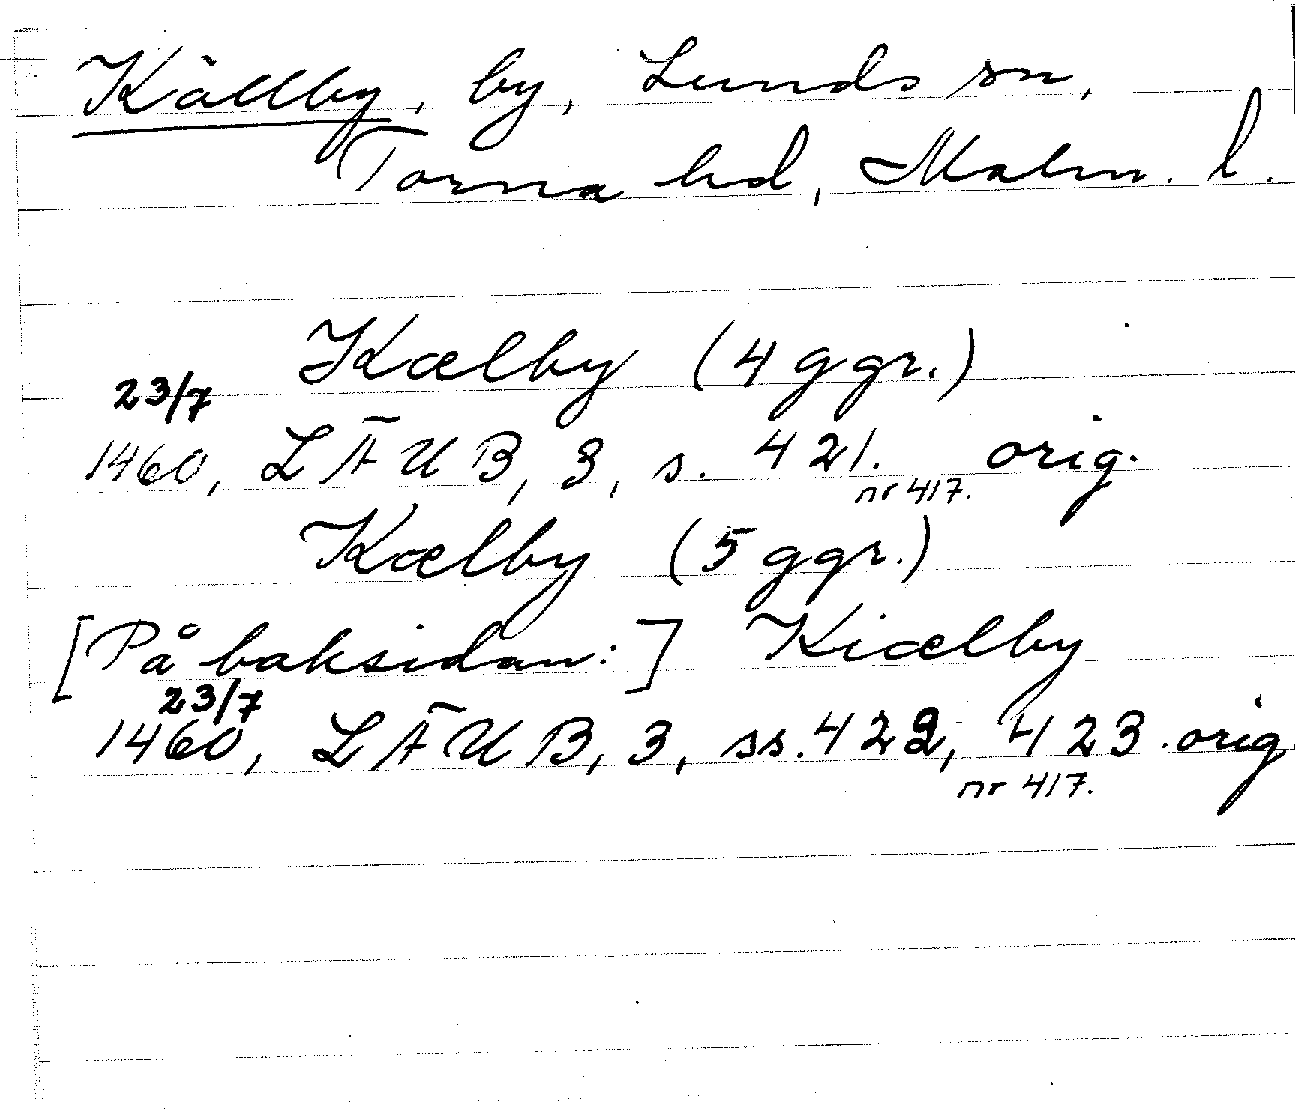 Källby, by, Lunds sn,
Torna hd, Malm. l.
Kælby (4 ggr.)
23/7
1460, LÄUB, 3, s. 421. orig.
nr 417.
Kælby (5 ggr.)
[På baksidan:] Kiælby
23/7
1460, LÄUB, 3, ss. 422, 423. orig
nr 417.